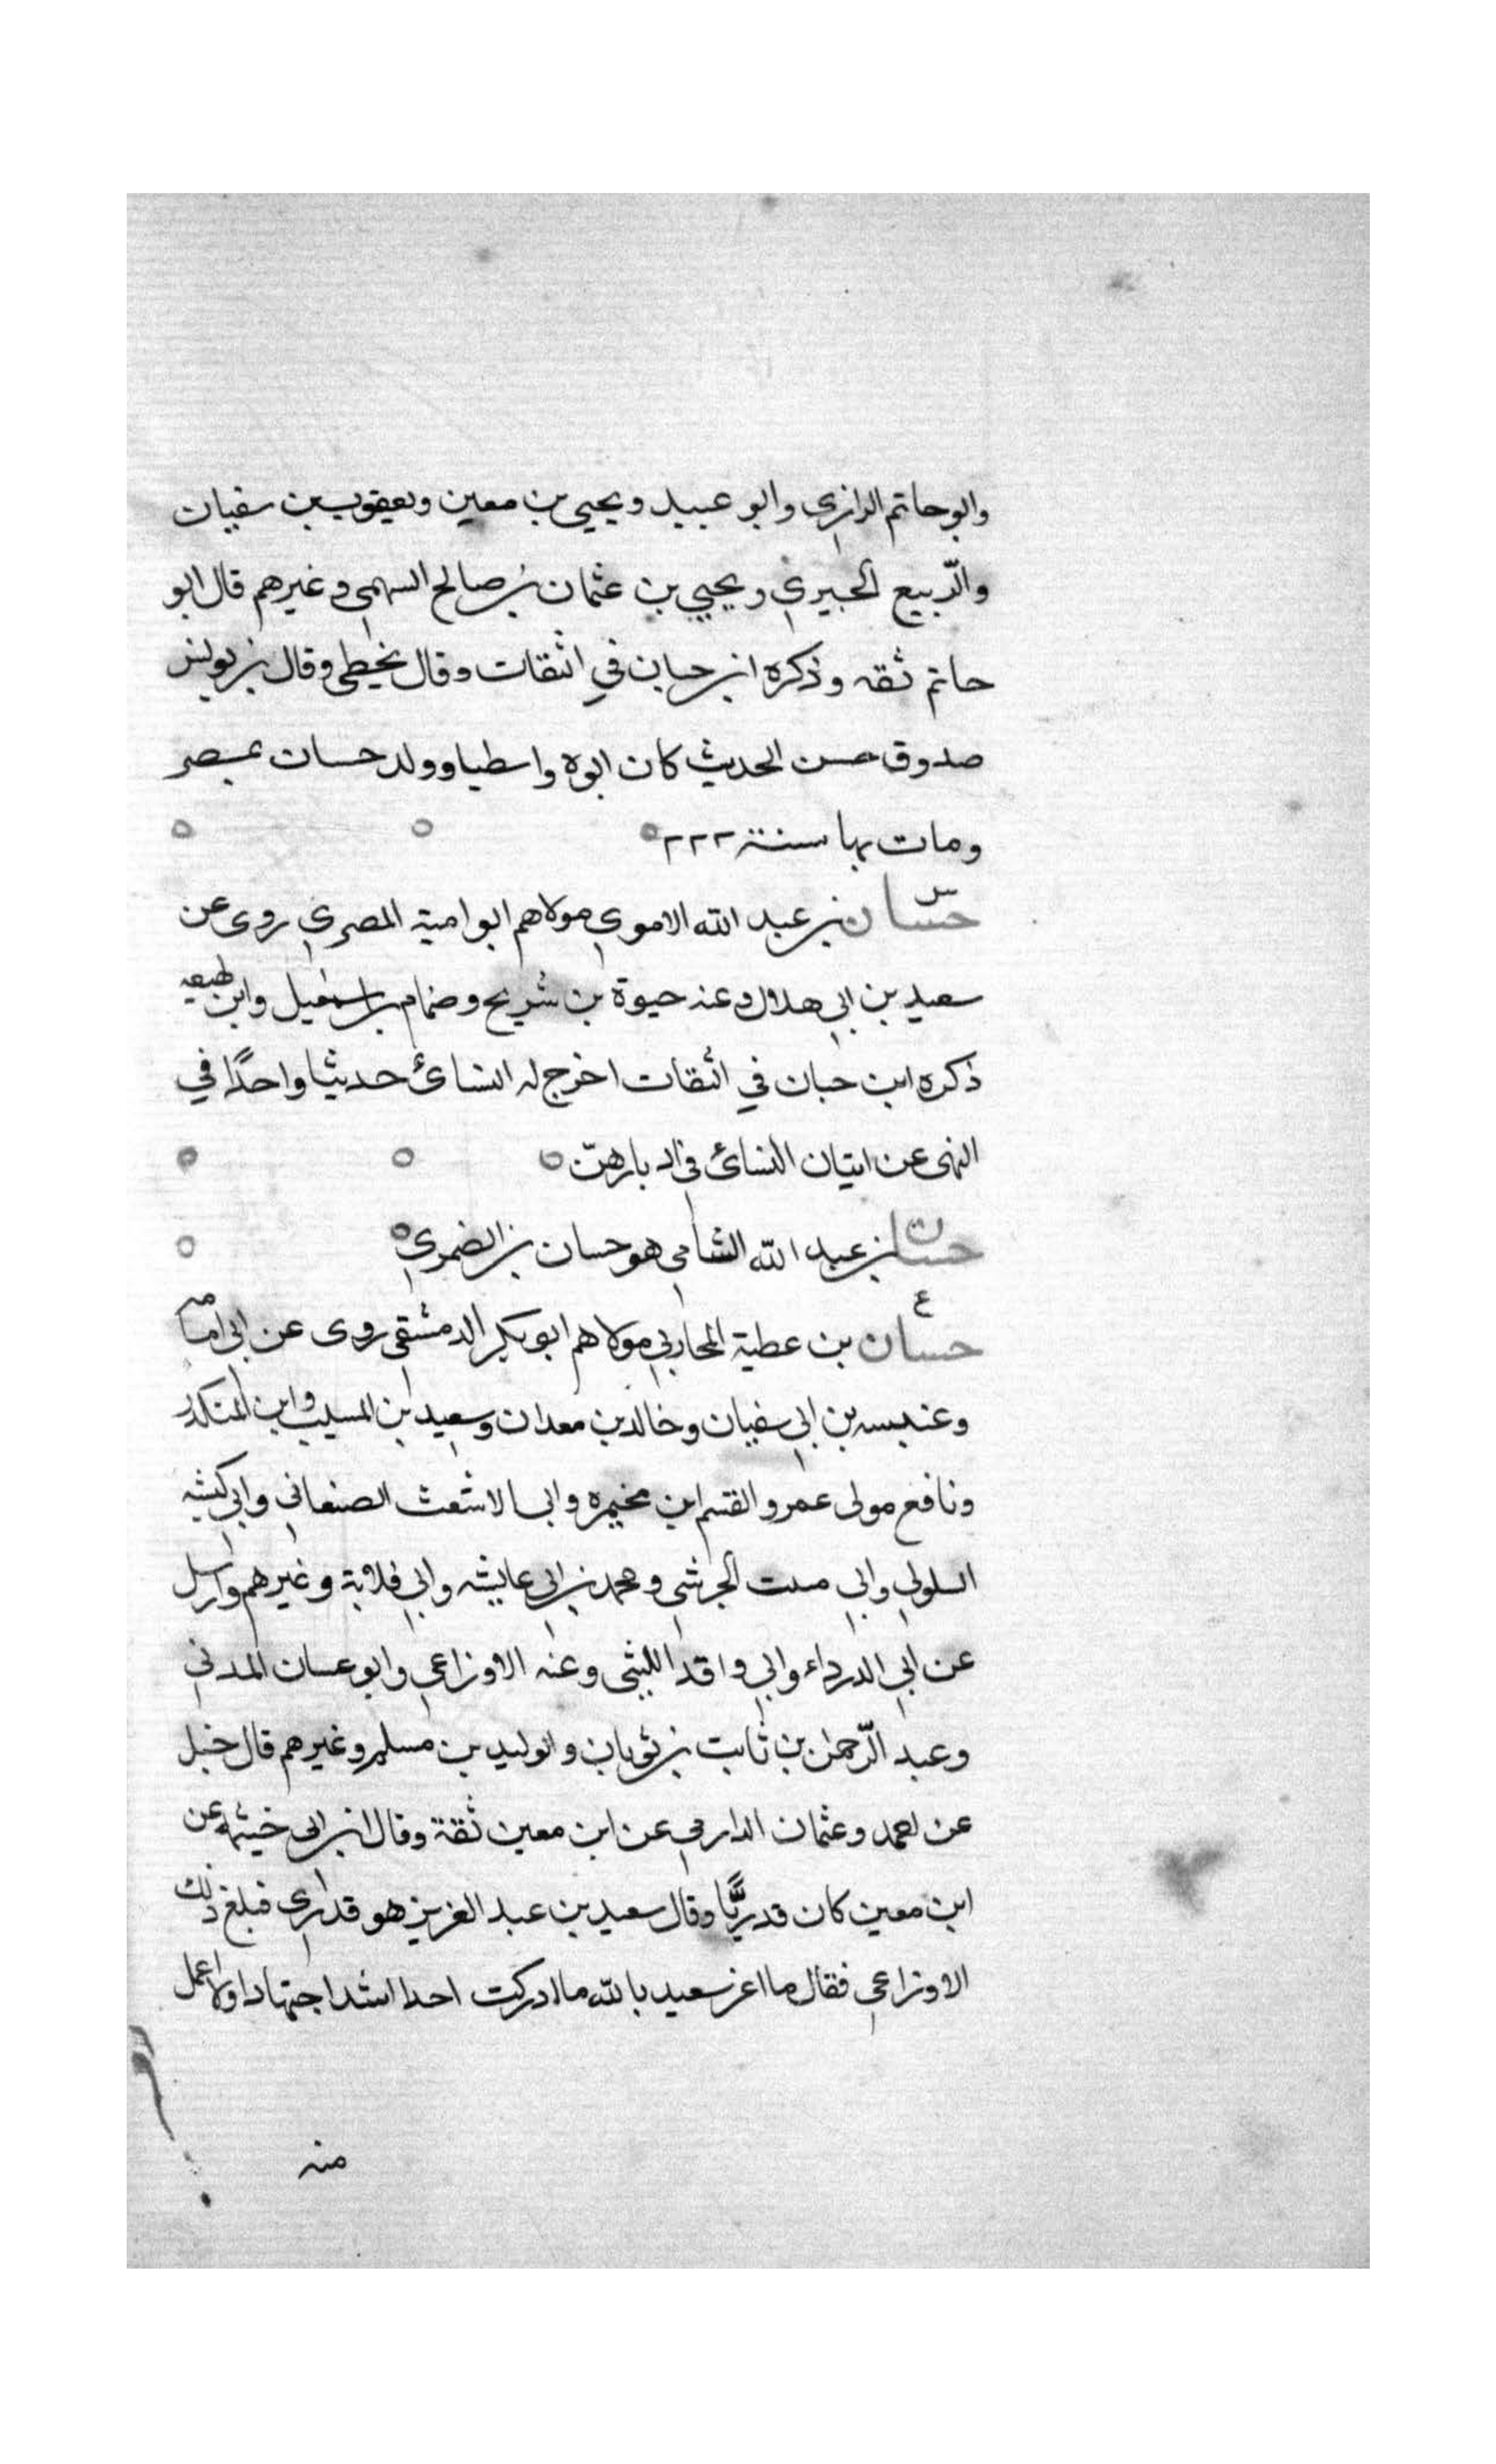 وابو حاتم الرازي وابو عبيد ويحيى بن معين ويعقوب بن سفيان
والربيع الجيزي ويحيى بن عثمان بن صالح السهمي وغيرهم قال ابو
حاتم ثقه وذكره ابن حبان في الثقات وقال يخطي وقال بن يونس
صدوق حسن الحديث كان ابوه واسطيا وولد حسان بمصر
ومات بها سنة ٢٢٢
س
حسان بن عبد الله الاموي مولاهم ابو امية المصري روى عن
سعيد بن ابي هلال وعنه حيوة بن شريح وضمام بن اسمعيل وابن لهيعه
ذكره ابن حبان في الثقات اخرج له النسائ حديثا واحدًا في
النهى عن اتيان النسائ في ادبارهنّ
حسان بن عبد الله الشامي هو حسان بن الضمري
ع
حسان بن عطية المحاربي مولاهم ابو بكر الدمشقي روى عن ابي امامه
وعنبسه بن ابي سفيان وخالد بن معدان وسعيد بن المسيب وابن المنكدر
ونافع مولى عمر والقسم ابن مخيمره وابي الاشعث الصنعاني وابي كبشه
السلولي وابي الجرشي ومحمد بن ابي عايشه وابي قلابة وغيرهم وارسل
عن ابي الدرداء وابي واقد الليثي وعنه الاوزاعي وابو غسان المدني
وعبد الرّحمن بن ثابت بن ثوبان والوليد بن مسلم وغيرهم قال حنبل
عن احمد وعثمان الدارمي عن ابن معين ثقة وقال ابن ابي خيثمه عن
ابن معين كان قدريًّا وقال سعيد بن عبد العزيز هو قدري فبلغ ذلك
الاوزاعي فقال ما اغر سعيد بالله ما ادركت احدا اشد اجتهادا ولا اعمل
منه